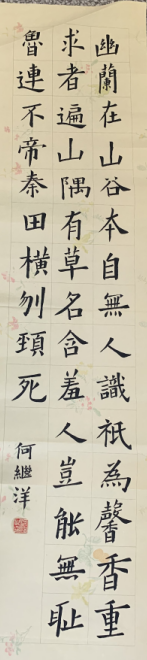 幽蘭在山谷本自無人識祇為馨香重
求者遍山隅有草名含羞人豈能無恥
魯連不帝秦田橫刎頸死
何繼洋